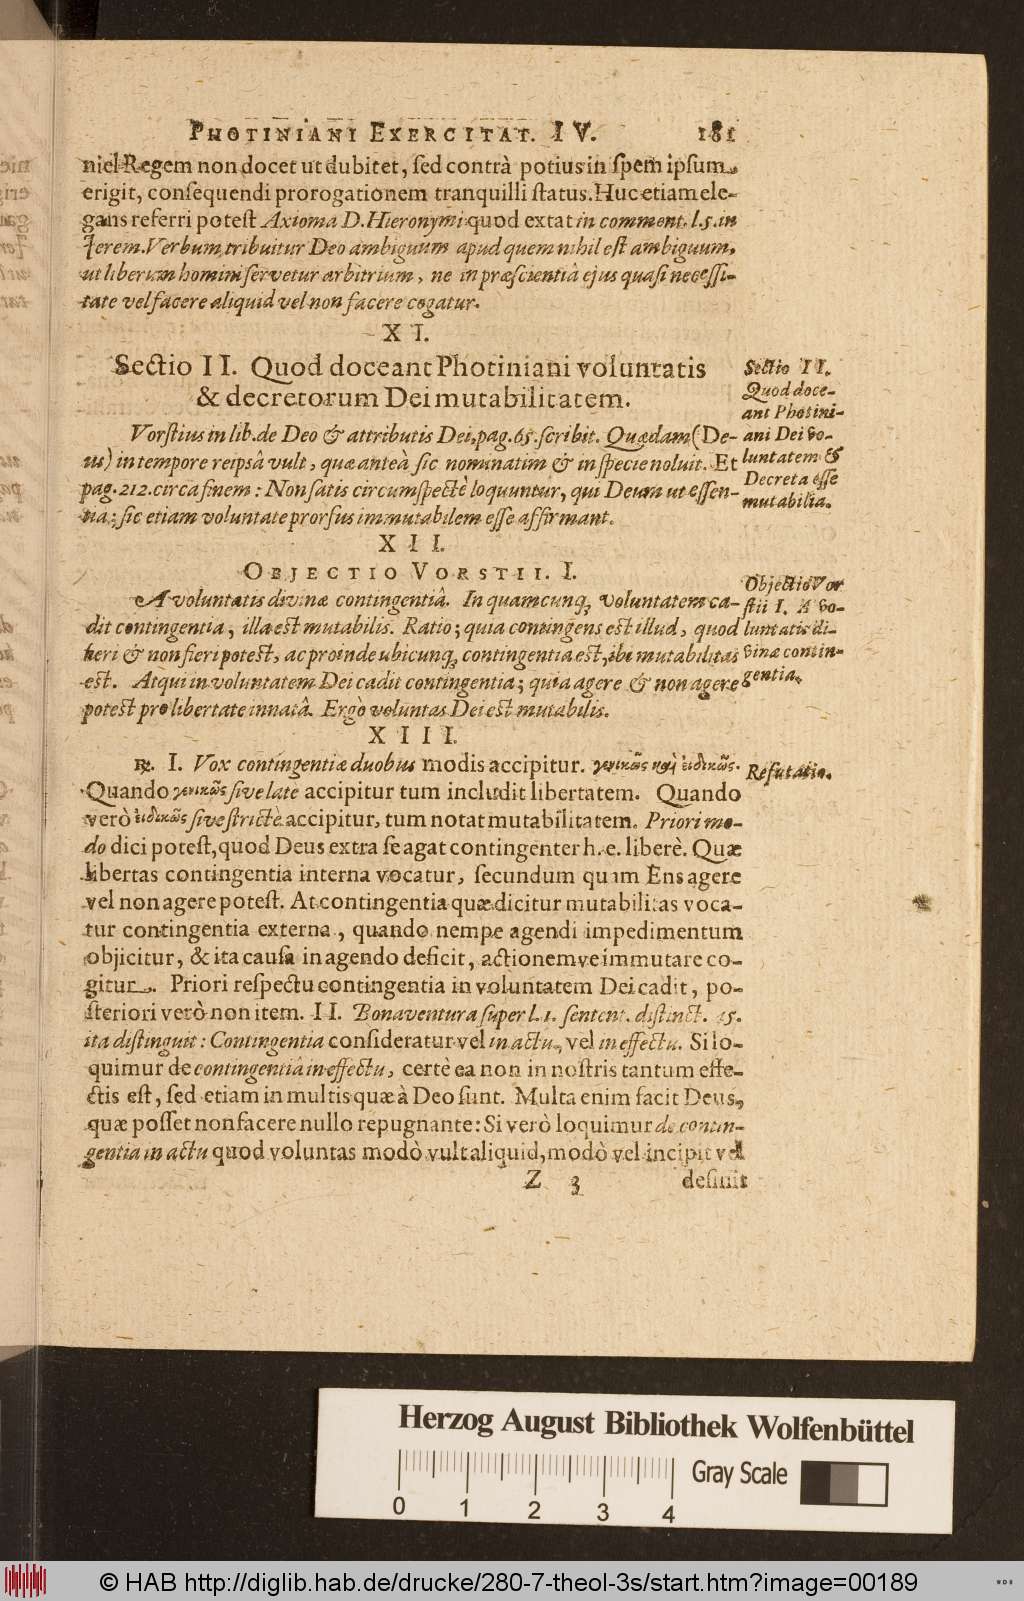 PHOTINIANI EXERCITAT. IV. 181
niel Regem non docet ut dubitet, sed contrà potius in spem ipsum
erigit, consequendi prorogationem tranquilli status. Huc etiam ele-
gans referri potest Axioma D. Hieronymi quod extat in comment. l. 5. in
Jerem. Verbum tribuitur Deo ambiguum apud quem nihil est ambiguum,
ut liberum homini servetur arbitrium, ne in præscientiâ ejus quasi necessi-
tate vel facere aliquid vel non facere cogatur.
XI.
Sectio II. Quod doceant Photiniani voluntatis
& decretorum Dei mutabilitatem.
Sectio II.
Quod doce-
ant Photini-
ani Dei vo-
luntatem &
Decreta esse
mutabilia.
Vorstius in lib. de Deo & attributis Dei, pag. 65. scribit. Quædam (De-
us) in tempore reipsâ vult, quæ anteà sic nominatim & in specie noluit. Et
pag. 212. circa finem: Non satis circumspectè loquuntur, qui Deum ut essen-
tia; sic etiam voluntate prorsus immutabilem esse affirmant.
XII.
OBJECTIO VORSTII. I.
Objectio Vor
stii I. A vo-
luntatis di-
vinæ contin-
gentia.
A voluntatis divinæ contingentiâ. In quamcunq; voluntatem ca-
dit contingentia, illa est mutabilis. Ratio; quia contingens est illud, quod
fieri & non fieri potest, ac proinde ubicunq; contingentia est, ibi mutabilitas
est. Atqui in voluntatem Dei cadit contingentia; quia agere & non agere
potest pro libertate innatâ. Ergo voluntas Dei est mutabilis.
XIII.
℞. I. Vox contingentiæ duobus modis accipitur. γενικῶς καὶ εἰδικῶς.
Refutatio.
Quando γενικῶς sive latè accipitur tum includit libertatem. Quando
verò εἰδικῶς sive strictè accipitur, tum notat mutabilitatem. Priori mo-
do dici potest, quod Deus extra se agat contingenter h. e. liberè. Quæ
libertas contingentia interna vocatur, secundum quam Ens agere
vel non agere potest. At contingentia quæ dicitur mutabilitas voca-
tur contingentia externa, quando nempe agendi impedimentum
objicitur, & ita causa in agendo deficit, actionemve immutare co-
gitur. Priori respectu contingentia in voluntatem Dei cadit, po-
steriori verò non item. II. Bonaventura super l. 1. sentent. distinct. 45.
ita distinguit: Contingentia consideratur vel in actu, vel in effectu. Si lo-
quimur de contingentiâ in effectu, certè ea non in nostris tantum effe-
ctis est, sed etiam in multis quæ à Deo sunt. Multa enim facit Deus,
quæ posset non facere nullo repugnante: Si verò loquimur de contin-
gentia in actu quod voluntas modò vult aliquid, modò vel incipit vel
Z 3 desinit
Herzog August Bibliothek Wolfenbüttel
Gray Scale
0 1 2 3 4
© HAB http://diglib.hab.de/drucke/280-7-theol-3s/start.htm?image=00189